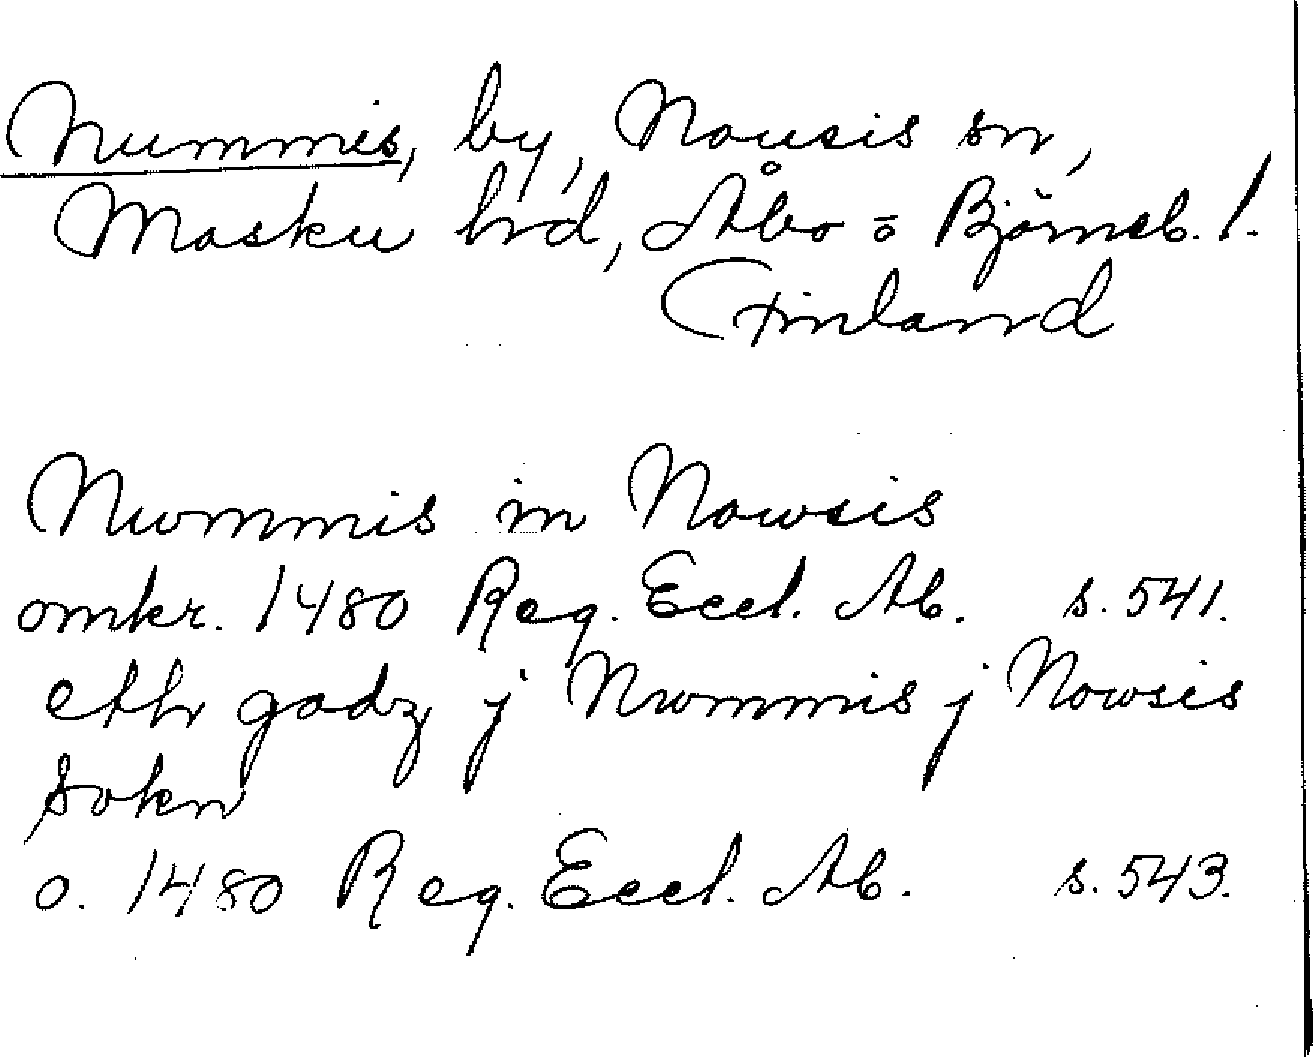 Nummis, by, Nousis sn,
Masku hd, Åbo o Björneb. l.
Finland
Nwmmis in Nowsis
omkr. 1480 Reg. Eccl. Ab. s. 541.
eth godz j Nwmmis j Nowsis
sokn
o. 1480 Reg. Eccl. Ab. s. 543.